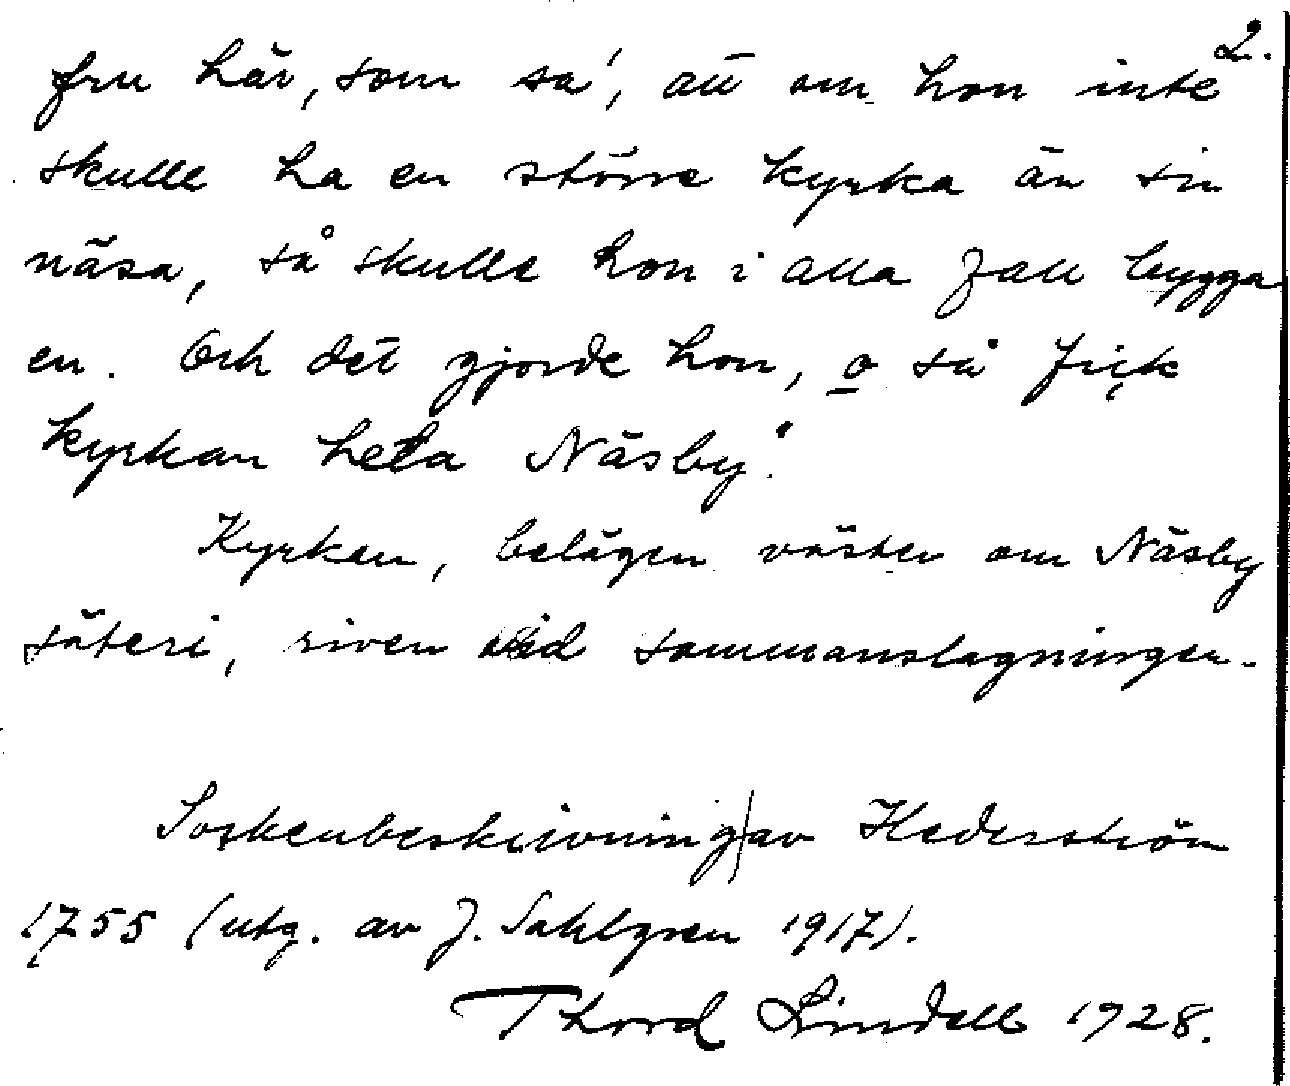 2.
fru här, som sa', att om hon inte
skulle ha en större kyrka än sin
näsa, så skulle hon i alla fall bygga
en. Och det gjorde hon, o så fick
kyrkan heta Näsby".
Kyrkan, belägen väster om Näsby
säteri, riven vid sammanslagningen.
Sockenbeskrivning av Hederström
1755 (utg. av J. Sahlgren 1917).
Thord Lindell 1928.